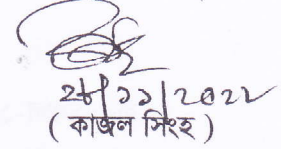 ২৮/১১/২০২২
( কাজল সিংহ )